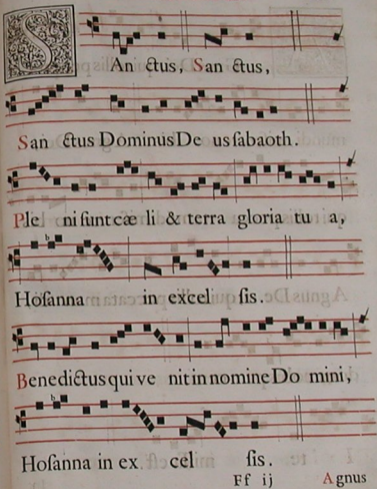 SAn ctus, San ctus,
San ctus Dominus De us ſabaoth.
Ple ni ſunt cæ li & terra gloria tu a,
Hoſanna in excel ſis.
Benedictus qui ve nit in nomine Do mini,
Hoſanna in ex cel ſis.
Ff ij Agnus